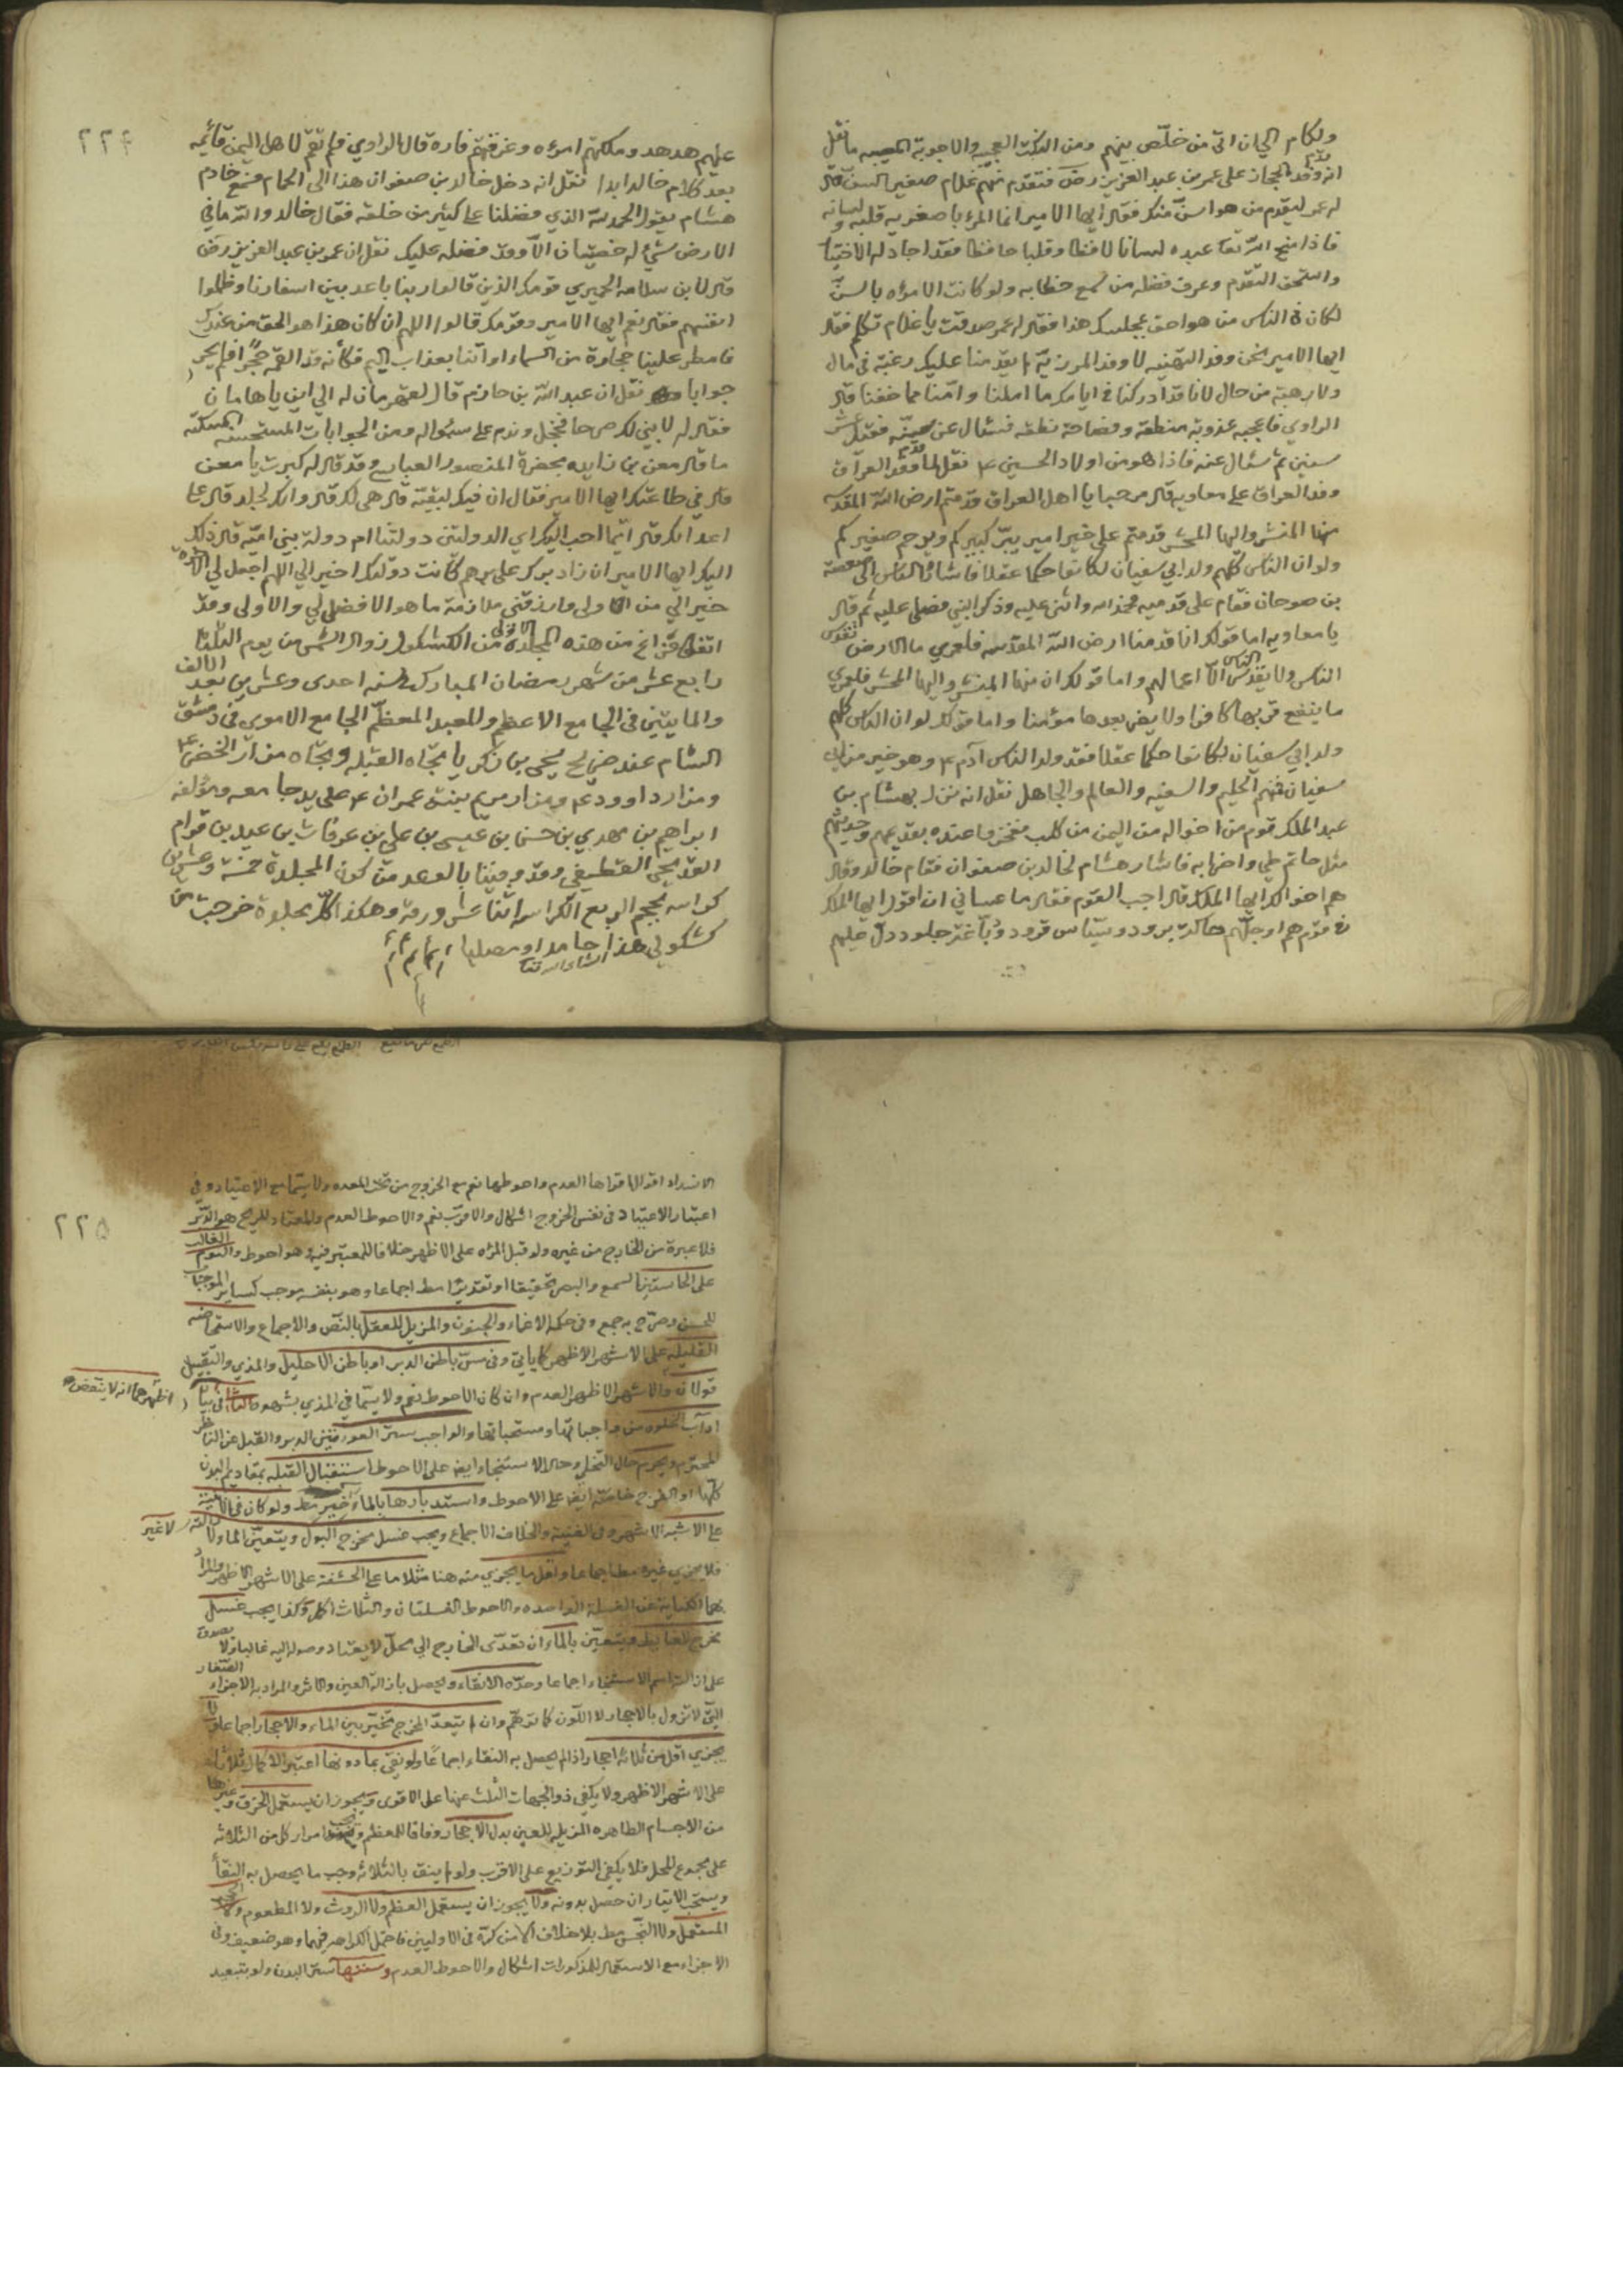 ولكام الي ان اتى من خلّص بينهم ومن النكت العجيبه والاجوبة المصيبه ما نقل
انه قدم وفد الحجاز على عمر بن عبد العزيز رض فتقدم منهم غلام صغير السن قال
له عمر ليتقدم من هو اسنّ منك فقال ايها الامير انما المرء باصغريه قلبه ولسانه
فاذا منح الله تعا عبده لسانا لافظا وقلبا حافظا فقد اجاد له الاختيا
واستحق التقدم وعرف فضله من سمع خطابه ولو كانت الامراه بالسنّ
لكان في الناس من هو احق بمجلسك هذا فقال له عمر صدقت يا غلام تكلم فقال
ايها الامير نحن وفد التهنيه لا وفد المرزيّة لم يقدمنا عليك رغبة في مال
ولا رهبة من حال لانا قد ادركنا في ايامك ما املنا وامّنا مما خفنا قال
الراوي فاعجبه عذوبة منطقه وفصاحة نطقه فسئال عن سنّه فقيل عشر
سنين ثم سئال عنه فاذا هو من اولاد الحسين ع نقل لما قدم وفد العراق
وفد العراق على معاويه قال مرحبا يا اهل العراق قدمتم ارض الله المقدسه
منها المنشر واليها المحشر قدمتم على خير امير يبرّ كبيركم ويرحم صغيركم
ولو ان الناس كلهم ولد ابي سفيان لكانوا حكما عقلا فاشار الناس الى صعصعة
بن صوحان فقام على قدميه فحمد الله واثنى عليه وذكر النبي فصلى عليه ثم قال
يا معاويه اما قولك انا قدمنا ارض الله المقدسه فلعمري ما الارض تقدس
الناس ولا يقدس الناس الا اعمالهم واما قولك ان منها المنشر واليها المحشر فلعمري
ما ينفع قربها كافرا ولا يضر بعدها مؤمنا واما قولك لو ان الناس كلهم
ولد ابي سفيان لكانوا حكما عقلا فقد ولد الناس آدم ع وهو خير من ابي
سفيان فمنهم الحليم والسفيه والعالم والجاهل نقل انه نزل بهشام بن
عبد الملك قوم من اخواله من اليمن من كلب ففخروا عنده بقديمهم وحديثهم
مثل حاتم طي واضرابه فاشار هشام لخالد بن صفوان فقام خالد وقال
هم اخوالك ايها الملك قال اجب القوم فقال ما عساني ان اقول ايها الملك
في قوم هم اوجلّهم حاكة برود وسيّاس قرود ودبّاغة جلود دلّ عليهم
٢٢٤
عليهم هدهد وملكتهم امراه وغرقتهم فاره قال الراوي فلم تقم لاهل اليمن قائمه
بعد كلام خالد ابدا نقل انه دخل خالد بن صفوان هذا الى الحمام فسمع خادم
هشام يقول الحمد لله الذي فضلنا على كثير من خلقه فقال خالد والله ما في
الارض شيء له خصيتان الّا وقد فضله عليك نقل ان عمر بن عبد العزيز رض
قال لابن سلامه الحميري قومك الذين قالوا ربنا باعد بين اسفارنا وظلموا
انفسهم فقال نعم ايها الامير وقومك قالوا اللهم ان كان هذا هو الحق من عندك
فامطر علينا حجارة من السماء او ائتنا بعذاب اليم فكأنه قد القمه حجرًا فلم يحر
جوابا نقل ان عبد الله بن حازم قال لقهرمان له الي اين يا هامان
فقال له لابني لك صرحا فخجل وندم على سئواله ومن الجوابات المستحسنه المسكته
ما قال معن بن زايده بحضرة المنصور العباسي وقد قال له كبرت يا معن
قال في طاعتك ايها الامير فقال ان فيك لبقيّة قال هي لك قال وانك لجلد قال على
اعدائك قال ايّما احب اليك اي الدولتين دولتنا ام دولة بني اميّه قال ذلك
اليك ايها الامير ان زاد برك على برهم كانت دولتك اخير الي اللهم اجعل لي الاخره
خير الي من الاولى وارزقني ملازمة ما هو الافضل لي والاولى وقد
اتفق الفراغ من هذه المجلدة الاولى من الكشكول زوال الشمس من يوم الثلثا
رابع عشر من شهر رمضان المبارك لسنه احدى وعشرين بعد الالف
والمايتين في الجامع الاعظم والمعبد المعظّم الجامع الاموي في دمشق
الشام عند ضريح يحيى بن زكريا تجاه القبله وتجاه مزار الخضر ع
ومزار داوود ع ومزار مريم بنت عمران ع على يد جامعه ومؤلفه
ابراهيم بن مهدي بن حسن بن عيسى بن علي بن عرفات بن عبيد بن قوام
القديحى القطيفي وقد وفينا بالوعد من كون المجلدة خمسة وعشرين
كراسه بحجم الربع الكراسه اثنا عشر ورقه وهكذا كلّ مجلدة خرجت من
كشكولي هذا حامدا ومصليا
انشاء الله تعا
٢٢٥
الانسداد اقوالا اقواها العدم واحوطها نعم مع الخروج من تحت المعده ولا سيّما مع الاعتياد وفي
اعتبار الاعتياد في نفس الخروج اشكال والاقرب نعم والاحوط العدم والمعتاد للريح هو الدبر
فلا عبرة من الخارج من غيره ولو قبل المرئه على الاظهر خلافا للمعتبر فيه وهو احوط والنوم الغالب
على الحاستين السمع والبصر تحقيقا او تقديرًا مط اجماعا وهو بنفسه موجب كساير الموجبات
للحسن وصرّح به جمع وفي حكمه الاغماء والجنون والمزيل للعقل بالنصّ والاجماع والاستحاضه
القليله على الاشهر الاظهر كما ياتي وفي مسّ باطن الدبر او باطن الاحليل والمذي والتقبيل
قولان والاشهر الاظهر العدم وان كان الاحوط نعم ولا سيّما في المذي بشهوه ثالثا في بيان
اظهرهما انه لا ينقض
اداب الخلوه من واجباتها ومستحباتها والواجب ستر العورتين الدبر والقبل عن الناظر
المحترم ويحرم حال التخلّي وحال الاستنجاء ايضا على الاحوط استقبال القبله بمقاديم البدن
كلّها او الفرج خاصّة ايضا على الاحوط واستدبارها مط ولو كان في الابنية
على الاشبه الاشهر وفي الغنية والخلاف الاجماع ويجب غسل مخرج البول ويتعيّن الماء
لا غير
فلا يجزي غيره مط اجماعا واقل ما يجزي منه هنا مثلا ما على الحشفة على الاشهر الاظهر والمراد
بهما الكنايه عن الغسلة الواحده والاحوط الغسلتان والثلاث اكمل وكذا يجب غسل
مخرج الغايط ويتعيّن بالماء ان تعدّى الخارج الي محلّ لا يعتاد وصوله اليه غالبا ولا يصدق
على ازالته اسم الاستنجاء اجماعا وحدّه الانقاء ويحصل بازالة العين والاثر والمراد به الاجزاء الصّغار
التّي لا تزول بالاحجار لا اللّون كما توهّم وان لم يتعدّ المخرج تخيّر بين الماء والاحجار اجماعا ولا
يجزي اقل من ثلاثه احجار اذا لم يحصل به النقاء اجماعا ولو نقي بما دونها اعتبر الاكمال ثلاثا
على الاشهر الاظهر ولا يكفي ذو الجهات الثلث عنها على الاقوى ويجوز ان يستعمل الخزف وغيرها
من الاجسام الطاهره المزيله للعين بدل الاحجار وفاقا للمعظم ويجب امرار كل من الثلاثه
على مجموع المحل فلا يكفي التوزيع على الاقرب ولو لم ينق بالثلاثه وجب ما يحصل به النقأ
ويستحب الايتار ان حصل بدونه ولا يجوز ان يستعمل العظم ولا الروث ولا المطعوم ولا الحجر
المستعمل ولا النّجس مط بلا خلاف الا من كرّه في الاوليين فاحتمل الكراهه فيهما وهو ضعيف وفي
الاجزاء مع الاستعمال للمذكورات اشكال والاحوط العدم وسننها ستر البدن ولو بتبعيد